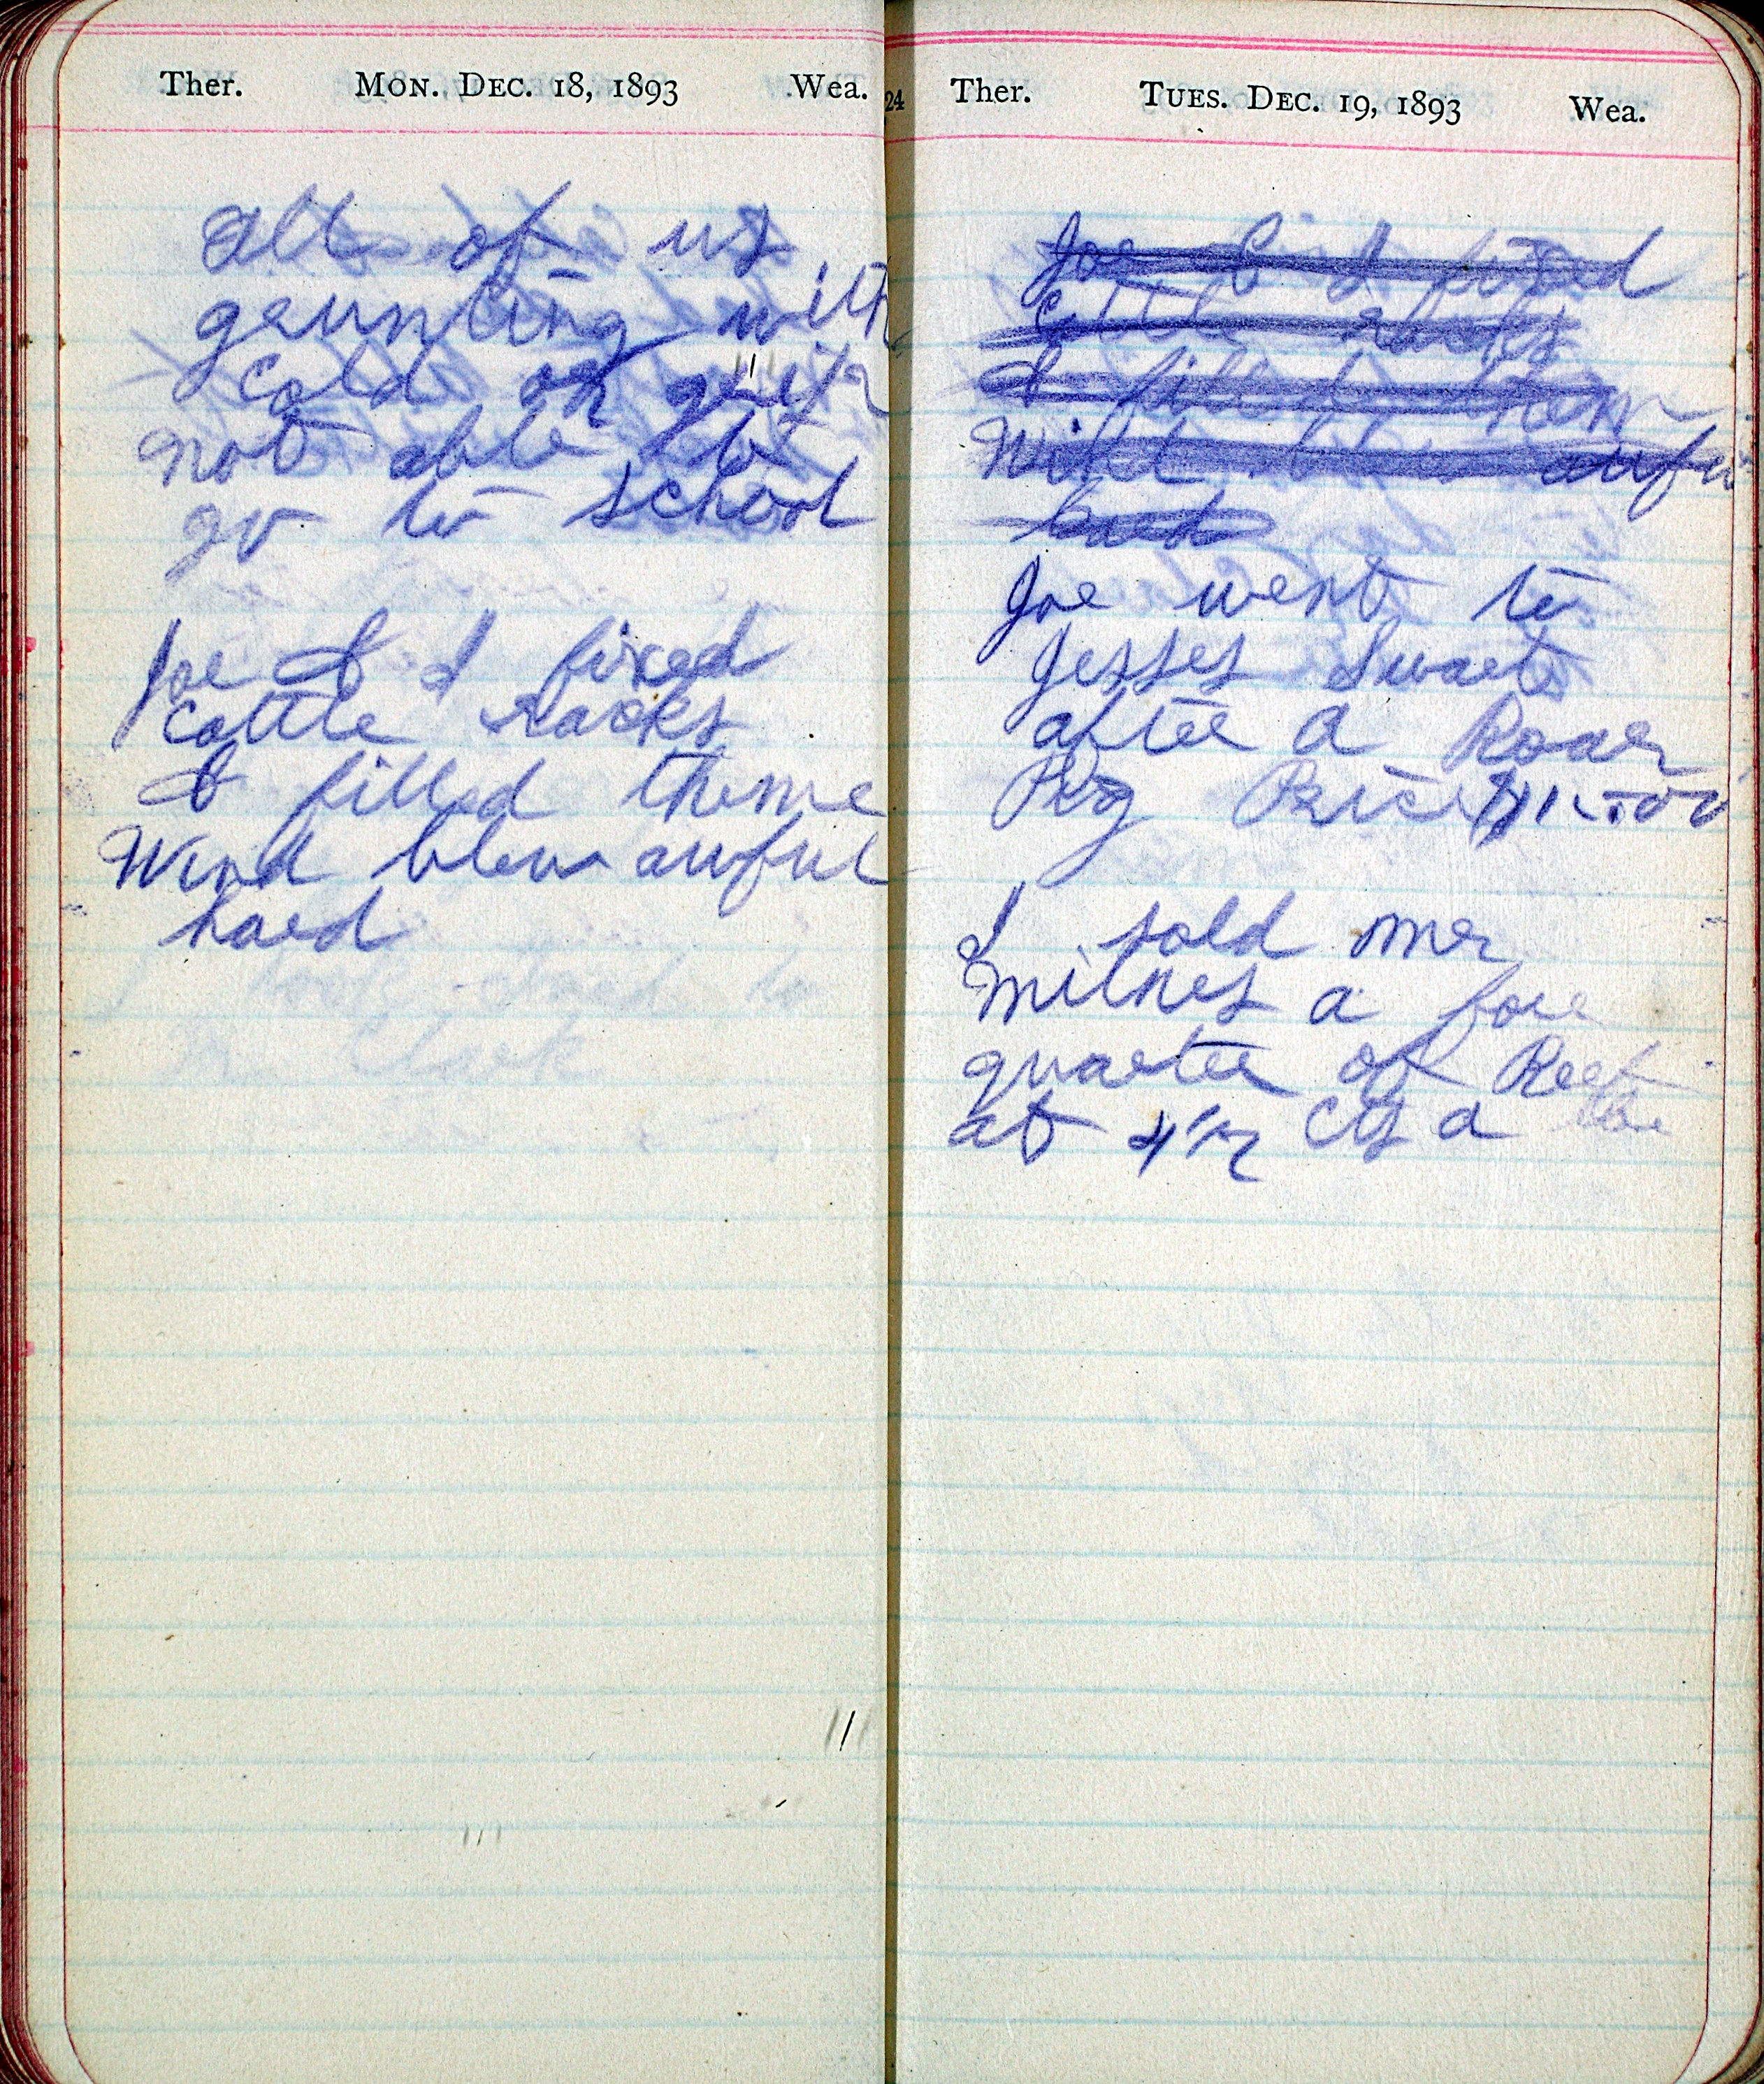 Ther. MON. DEC. 18, 1893 Wea.
All of us
grunting with
cold or grip
not able to
go to school
Joe & I fixed
cattle racks
& filled theme
Wind blew awful
hard
24
Ther. TUES. DEC. 19, 1893 Wea.
Joe & I fixed
cattle racks
& filled them
Wind blew awful
hard
Joe went to
Jesses Swarts
after a Boar
Pig Price
I sold mr
Milnes a fore
quarter of Beef
at 4 1/2 cts a